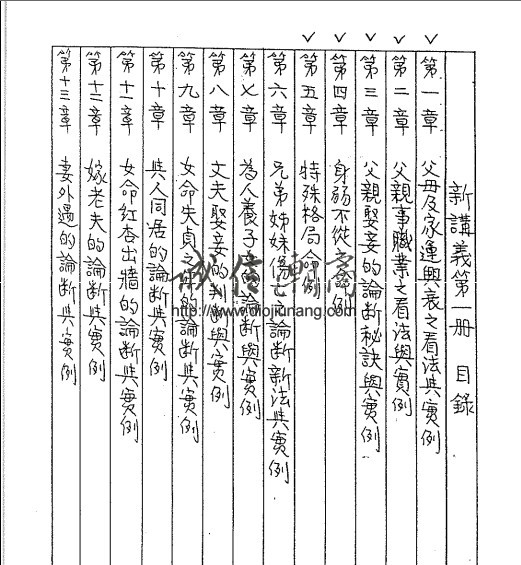 新講義第一冊 目錄
第一章 父母及家運興衰之看法與實例
第二章 父親事職業之看法與實例
第三章 父親娶妾的論斷秘訣與實例
第四章 身弱不從之命例
第五章 特殊格局命例
第六章 兄弟姊妹傷亡論斷新法與實例
第七章 為人養子論斷與實例
第八章 丈夫娶妾的判斷與實例
第九章 女命失貞之命的論斷與實例
第十章 與人同居的論斷與實例
第十一章 女命紅杏出牆的論斷與實例
第十二章 嫁老夫的論斷與實例
第十三章 妻外遇的論斷與實例
http://www.diojiunang.com